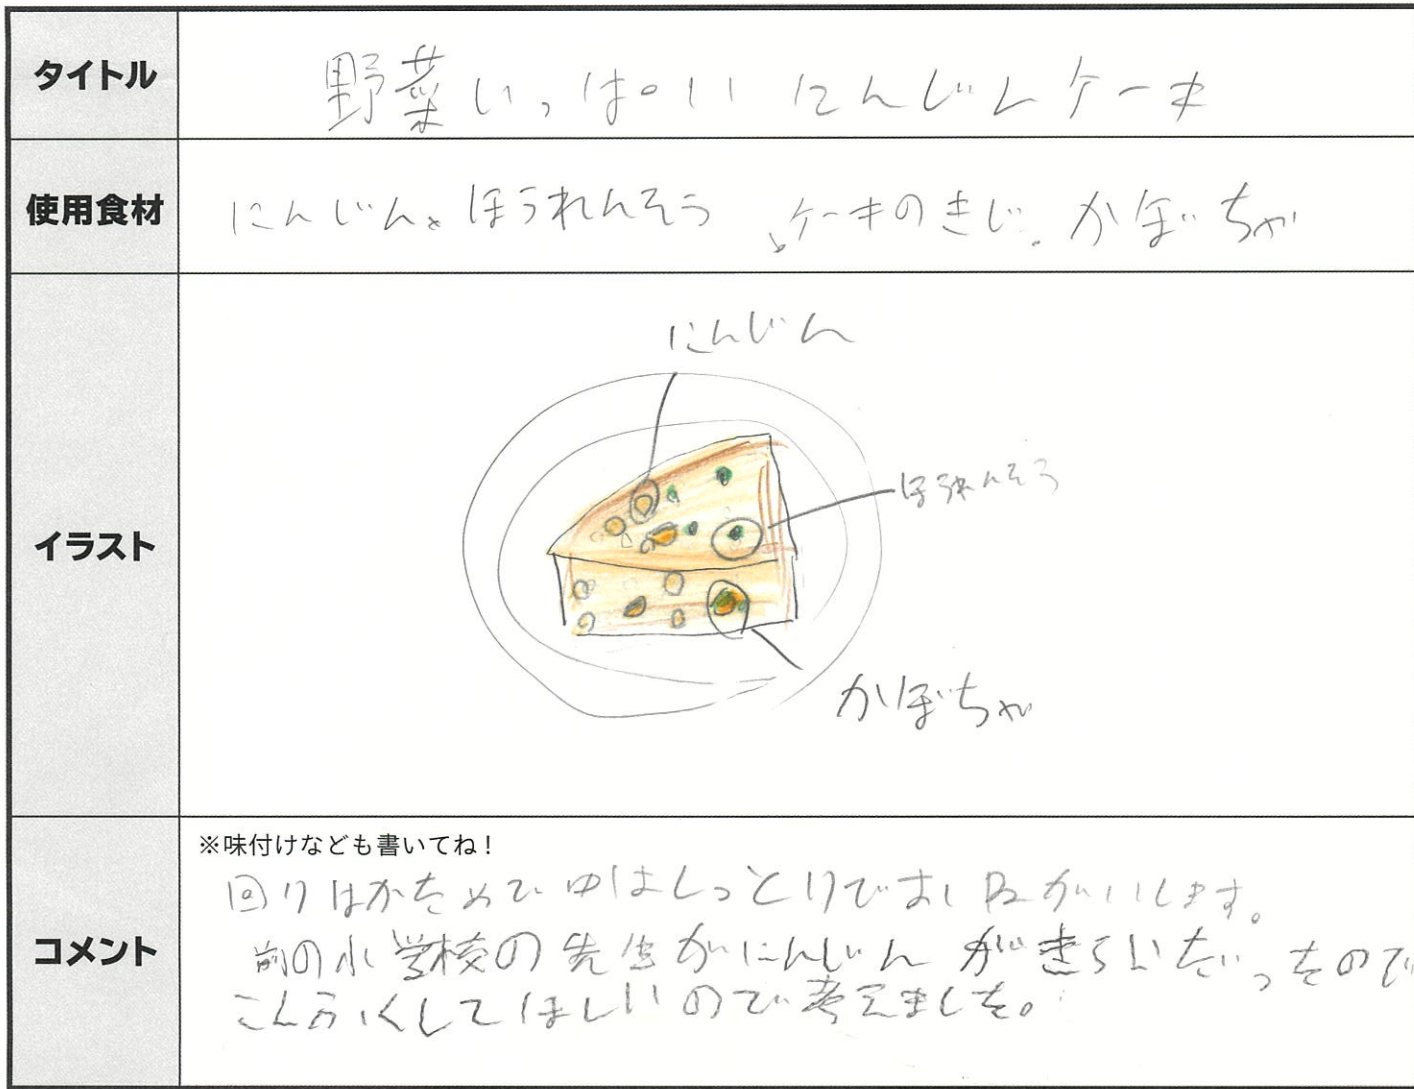 タイトル
野菜いっぱいにんじんケーキ
使用食材
にんじん、ほうれんそう、ケーキのきじ、かぼちゃ
イラスト
にんじん
ほうれんそう
かぼちゃ
コメント
※味付けなども書いてね！
回りはかためで中はしっとりでおしがいします。
前の小学校の先生がにんじんがきらいだったので
こくふくしてほしいので考えました。